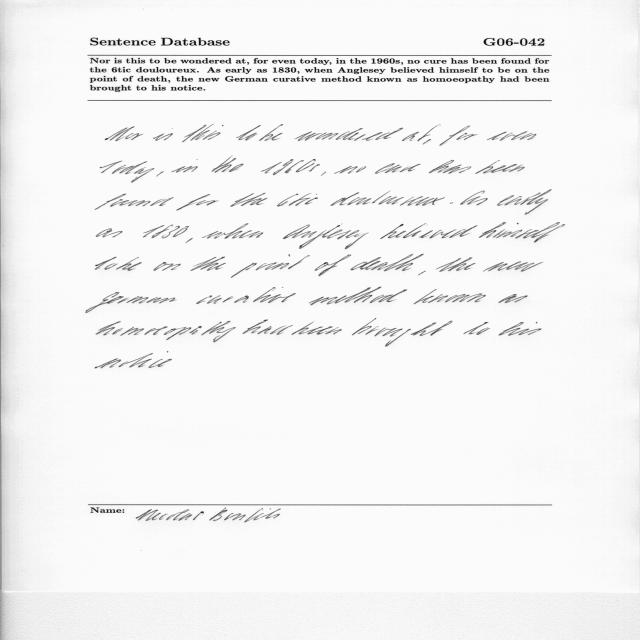 Sentence Database G06-042
Nor is this to be wondered at, for even today, in the 1960s, no cure has been found for
the 6tic douloureux. As early as 1830, when Anglesey believed himself to be on the
point of death, the new German curative method known as homoeopathy had been
brought to his notice.
Nor is this to be wondered at, for even
today, in the 1960s, no cure has been
found for the 6tic douloureux. As early
as 1830, when Anglesey believed himself
to be on the point of death, the new
German curative method known as
homoeopathy had been brought to his
notice
Name: